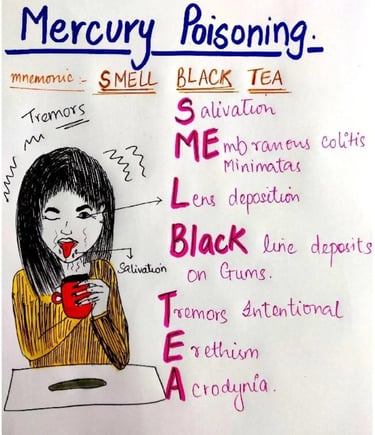 Mercury Poisoning.
mnemonic :- SMELL BLACK TEA
Tremors
Salivation
MEmbranous colitis
Minimatas
Lens deposition
Salivation
Black line deposits
on Gums.
Tremors Intentional
Erethism
Acrodynia.